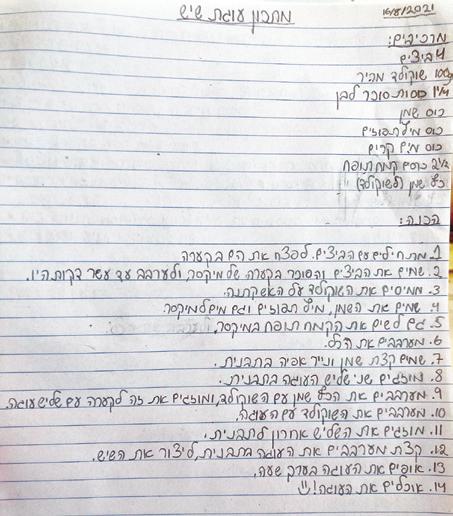 16/8/2021
מתכון עוגת שיש
מרכיבים:
4 ביצים
100g שוקולד מריר
1 1/4 כוסות סוכר לבן
כוס שמן
כוס מיץ תפוזים
כוס מים קרים
2 1/2 כוסות קמח תופח
כף שמן (לשוקולד)
הכנה:
1. מתחילים עם הביצים. לפצח את הם בקערה
2. שמים את הביצים והסוכר בקערה של מיקסר, ולערבב עד עשר דקות היו.
3. ממיסים את השוקולד על האש קטנה.
4. שמים את השמן, מיץ תפוזים וגם מים למיקסר.
5. גם לשים את הקמח תופח במיקסר.
6. מערבבים את הכל.
7. שמים קצת שמן ונייר אפיה בתבנית.
8. מוזגים שני שליש העוגה בתבנית.
9. מערבבים את הכף שמן עם השוקולד, ומוזגים את זה לקערה עם שליש עוגה.
10. מערבבים את השוקולד עם העוגה.
11. מוזגים את השליש אחרון לתבנית.
12. קצת מערבבים את העוגה בתבנית, ליצור את השיש.
13. אופים את העוגה בערך שעה.
14. אוכלים את העוגה!